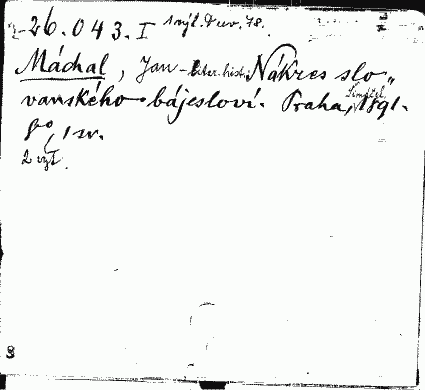 26.043.I
Máchal, Jan - liter. hist. Nákres slo„
vanského bájesloví. Praha, Šimáček, 1891.
8°, 1 sv.
2 výt.
8